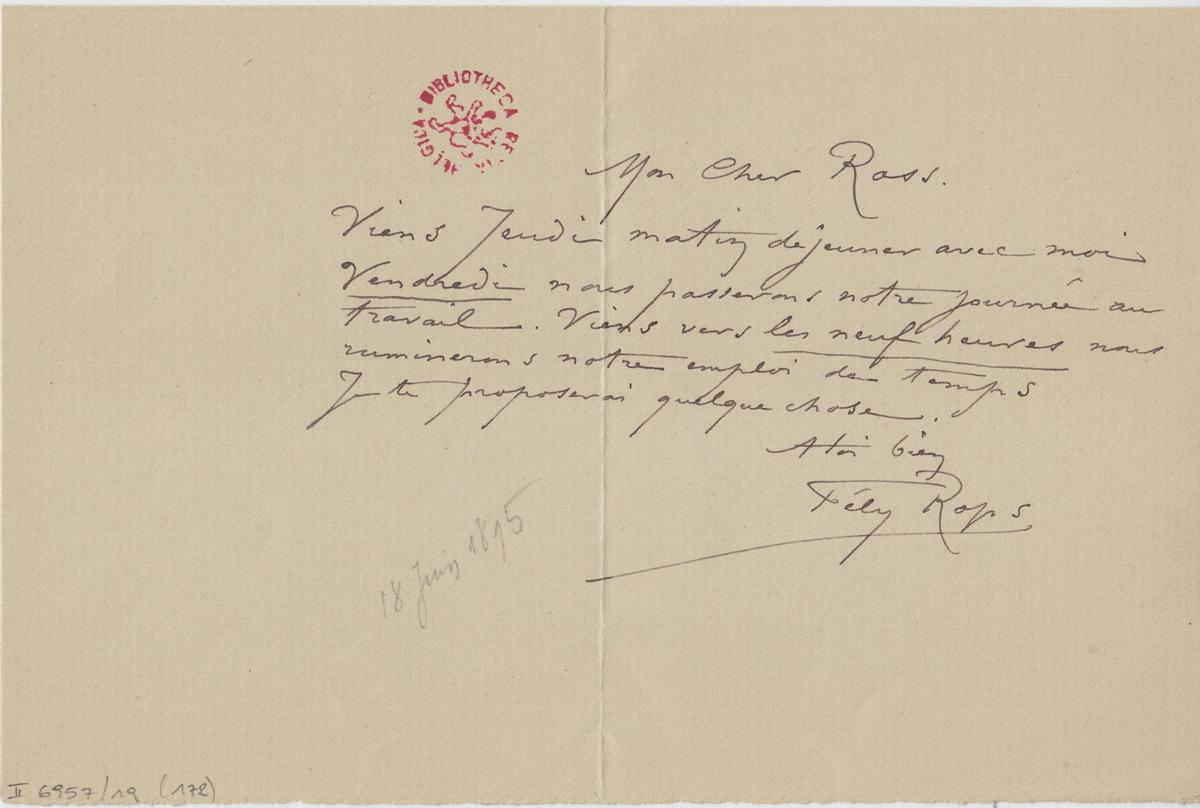 BIBLIOTHECA REGIA BELGICA
Mon Cher Rass.
Viens Jeudi matin déjeuner avec moi
Vendredi nous passerons notre journée au
travail. Viens vers les neuf heures nous
ruminerons notre emploi de temps
Je te proposerai quelque chose.
A toi bien
Fély Rops
18 Juin 1895
II 6957/19 (172)